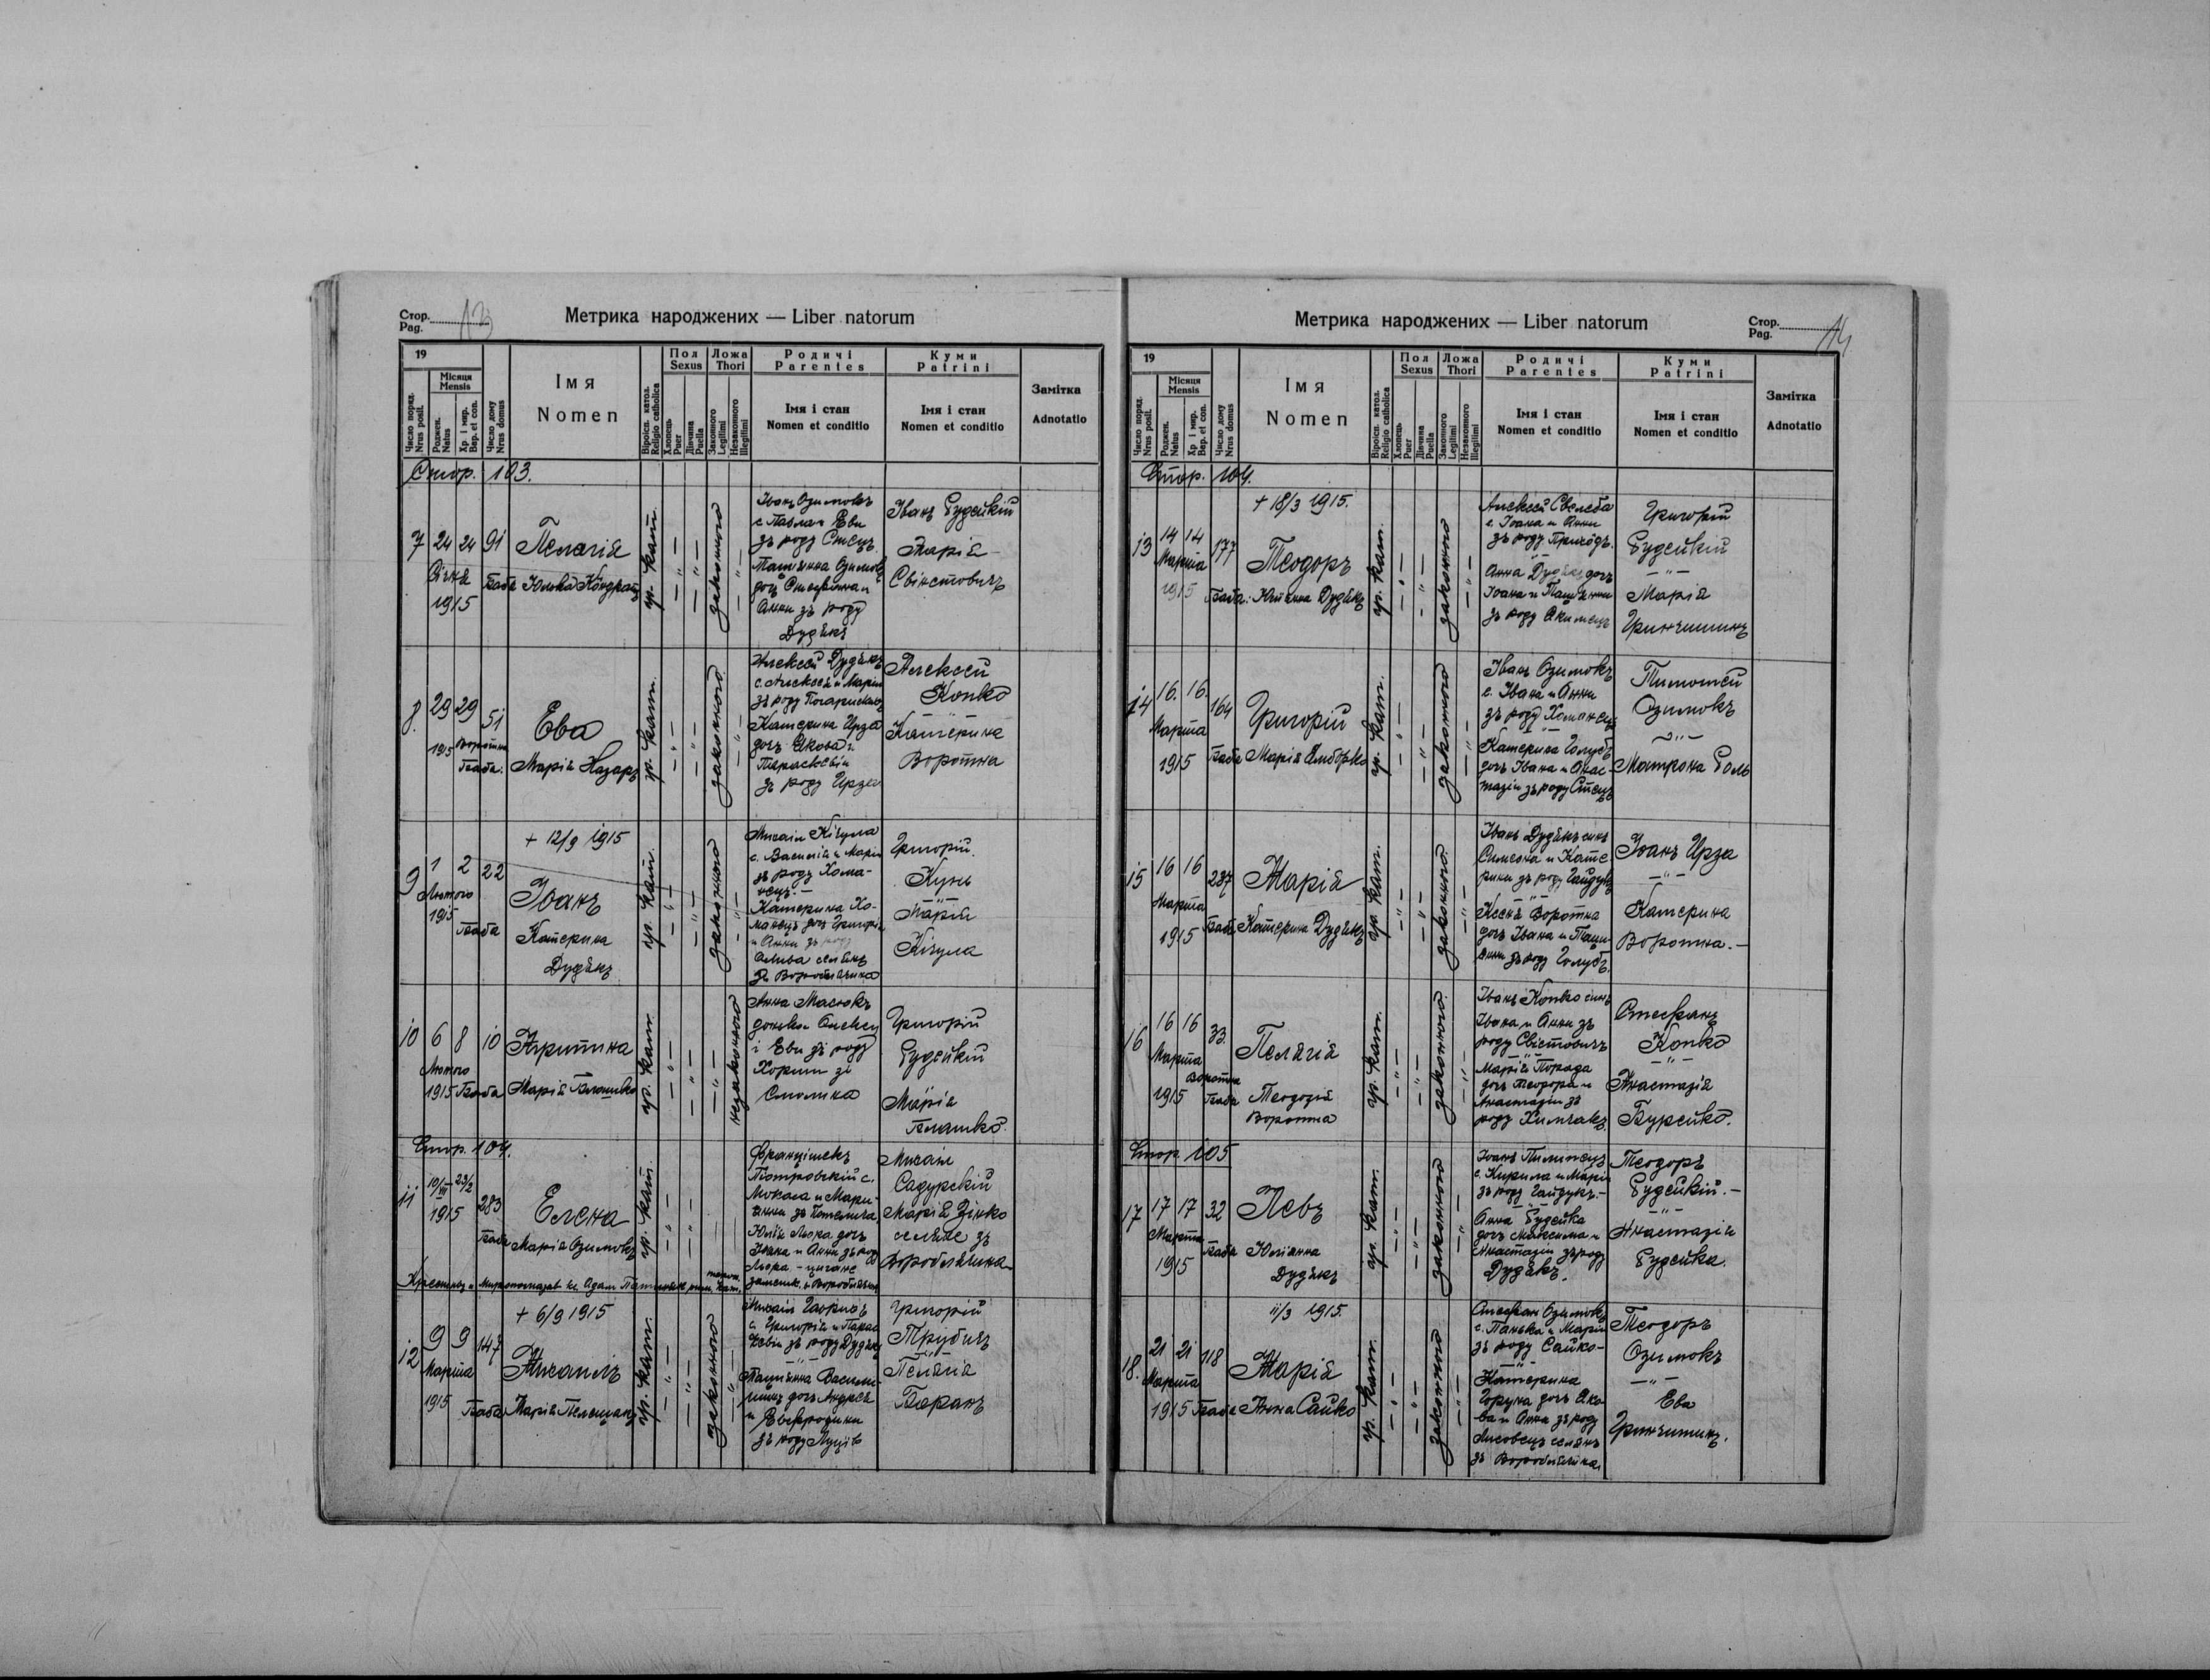 Стор.
Pag.
13
Метрика народжених — Liber natorum
19
Число поряд.
Nrus posit.
Місяця
Mensis
Роджен.
Natus
Хр. і мир.
Bap. et con.
Число дому
Nrus domus
Імя
Nomen
Віроісп. катол.
Religio catholica
Пол
Sexus
Хлопець
Puer
Дівчина
Puella
Ложа
Thori
Законного
Legitimi
Незаконного
Illegitimi
Родичі
Parentes
Імя і стан
Nomen et conditio
Куми
Patrini
Імя і стан
Nomen et conditio
Замітка
Adnotatio
Стор. 103.
7 24 24 91 Пелагія
Січня
1915
Баба Юлька Кондратъ
гр. кат.
законного
Іванъ Озимокъ
с. Павла и Еви
зъ роду Стецъ.
Татіянна Озимокъ
Анни зъ роду
Дудякъ
Іванъ Будейкій
Марія
Свінстовичъ
8. 29 29 51 Ева
1915 Воротна
Баба: Марія Назаръ
гр. кат.
законного
Алексѣй Дудякъ
с. Алексѣя и Маріи
зъ роду
Катерина Ирза
доч. Якова и
Параскевіи
зъ роду Ирза
Алексѣй
Копко
Катерина
Воротна
+ 12/9 1915
9 1 2 22 Іванъ
Лютого
1915
Баба Катерина
Дудякъ
гр. кат.
законного
Михаил Кічула
с. Василія и Маріи
зъ роду Хома-
нецъ.
Катерина Хо-
манецъ доч. Григорія
и Анни зъ роду
селянъ
зъ Вороблячина
Григорій
Кунь
Марія
Кічула
10 6 8 10
Лютого
1915 Баба Марія
гр. кат.
незаконного
Анна Масюкъ
донька Олексы
і Еви зъ роду
Хорит зі
Смолина
Григорій
Будейкій
Марія
Стор. 104.
11 10/III 23/2 283 Елена
1915
Баба Марія Озимокъ
гр. кат.
Францішекъ
Піотровскій с.
Анни зъ Потелича
Юлія Люра доч.
Івана и Анни зъ роду
Люра - цигане
Михаил
Садурскій
Марія Зінко
селяне зъ
Вороблячина
+ 6/9 1915
12 9 9 147 Михаилъ
Марта
1915
Баба Марія Пелещакъ
гр. кат.
законного
Михаил Гаврихъ
с. Григорія и Парас
кевіи зъ роду Дудякъ
Татіянна Васили-
шинъ доч. Андрея
и Евфрозини
зъ роду Луцівъ
Григорій
Трубичъ
Пелагія
Баранъ
Метрика народжених — Liber natorum
Стор.
Pag.
14.
19
Число поряд.
Nrus posit.
Місяця
Mensis
Роджен.
Natus
Хр. і мир.
Bap. et con.
Число дому
Nrus domus
Імя
Nomen
Віроісп. катол.
Religio catholica
Пол
Sexus
Хлопець
Puer
Дівчина
Puella
Ложа
Thori
Законного
Legitimi
Незаконного
Illegitimi
Родичі
Parentes
Імя і стан
Nomen et conditio
Куми
Patrini
Імя і стан
Nomen et conditio
Замітка
Adnotatio
Стор. 104.
+ 18/3 1915.
13 14 14 177 Теодоръ
Марта
1915 Баба: Юліянна Дудякъ
гр. кат.
законного
Алексѣй Свелеба
с. Іоана и Анни
зъ роду Приходъ.
Анна Дудякъ доч
Іоана и Татіянни
зъ роду Якимецъ
Григорій
Будейкій
Марія
Гринчишинъ
14 16. 16. 164 Григорій
Марта
1915 Баба Марія
гр. кат.
законного
Іванъ Озимокъ
с. Івана и Анни
зъ роду Хоманецъ
Катерина Голубъ
доч Івана и Анас-
тазіи зъ роду Стецъ
Тимотей
Озимокъ
Матрона Голь
15 16 16 237 Марія
Марта
1915 Баба Катерина Дудякъ
гр. кат.
законного
Іванъ Дудякъ синъ
Симеона и Кате
рини зъ роду Гайдукъ
Ксеня Воротна
доч Івана и Таці-
янни зъ роду Голубъ.
Іоанъ Ирза
Катерина
Воротна.
16 16 16 33. Пелагія
Марта
1915 Воротна
Баба Теодозія
Воротна
гр. кат.
законного
Іванъ Копко синъ
Івана и Анни зъ
роду Свістовичъ
Марія Порада
доч Теодора и
Анастазіи зъ
роду Химчакъ
Стефанъ
Копко
Анастазія
Бурейко.
Стор. 105
17 17 17 32 Левъ
Марта
1915
Баба Юліянна
Дудякъ
гр. кат.
законного
Іоанъ Пилипецъ
с. Кирила и Маріи
зъ роду Гайдукъ.
Анна Будейка
доч Максима и
Анастазіи зъ роду
Дудякъ.
Теодоръ
Будейкій.
Анастазія
Будейка.
11/3 1915.
18. 21 21 118 Марія
Марта
1915 Баба Анна Сайко
гр. кат.
законного
Стефан Озимокъ
с. Панька и Маріи
зъ роду Сайко
Катерина
Горуна доч Яко-
ва и Анни зъ роду
Лисовецъ селянъ
зъ Вороблячина.
Теодоръ
Озимокъ
Ева
Гринчишинъ.